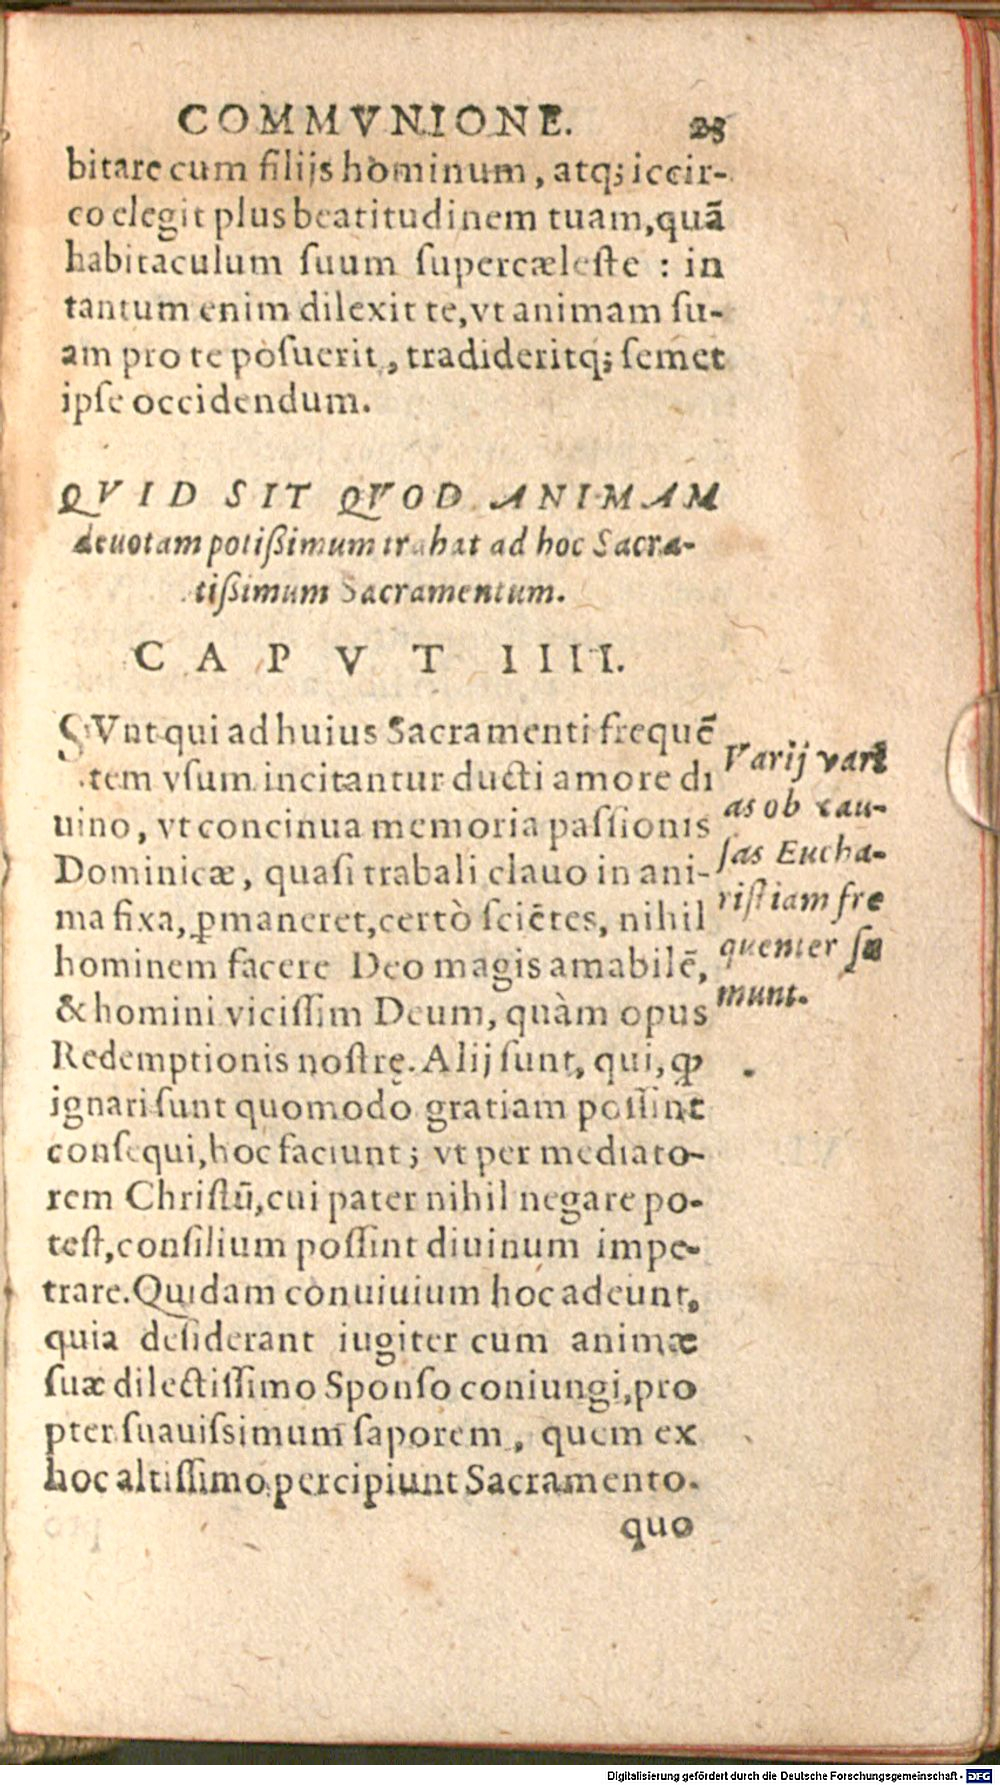 COMMVNIONE. 28
bitare cum filijs hominum, atq; iccir-
co elegit plus beatitudinem tuam, quã
habitaculum suum supercæleste : in
tantum enim dilexit te, vt animam su-
am pro te posuerit, tradideritq; semet
ipse occidendum.
QVID SIT QVOD ANIMAM
deuotam potißimum trahat ad hoc Sacra-
tißimum Sacramentum.
CAPVT IIII.
SVnt qui ad huius Sacramenti frequẽ
tem vsum incitantur ducti amore di
uino, vt concinua memoria passionis
Dominicæ, quasi trabali clauo in ani-
ma fixa, ꝑmaneret, certò sciẽtes, nihil
hominem facere Deo magis amabilẽ,
& homini vicissim Deum, quàm opus
Redemptionis nostrę. Alij sunt, qui, ꝙ
ignari sunt quomodo gratiam possint
consequi, hoc faciunt; vt per mediato-
rem Christũ, cui pater nihil negare po-
test, consilium possint diuinum impe-
trare. Quidam conuiuium hoc adeunt,
quia desiderant iugiter cum animæ
suæ dilectissimo Sponso coniungi, pro
pter suauissimum saporem, quem ex
hoc altissimo percipiunt Sacramento.
quo
Varij vari
as ob cau-
sas Eucha-
ristiam fre
quenter su
munt.
Digitalisierung gefördert durch die Deutsche Forschungsgemeinschaft - DFG